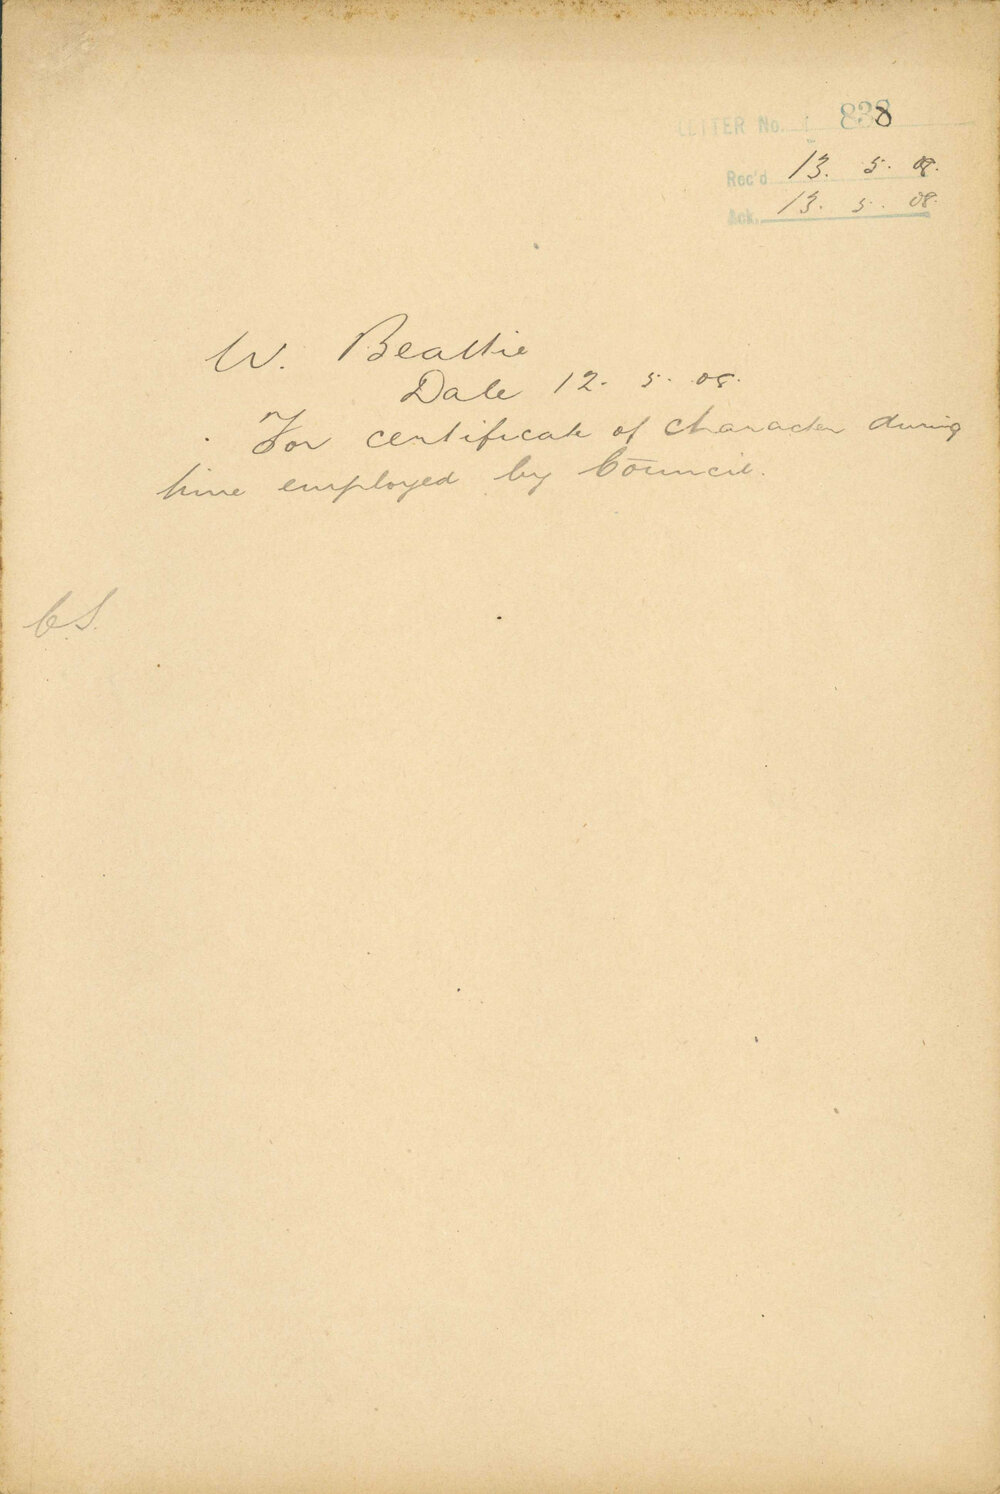 LETTER No. 838
Rec'd 13. 5. 08.
Ack. 13. 5. 08.
W. Beattie
Date 12. 5. 08.
For certificate of character during
time employed by Council.
C.S.